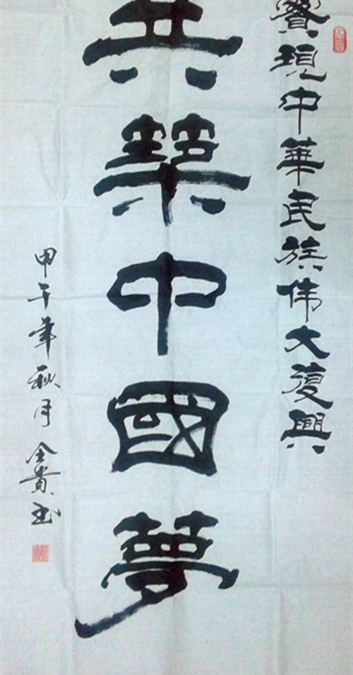 實現中華民族伟大復興
共築中國夢
甲午年秋月全貴书